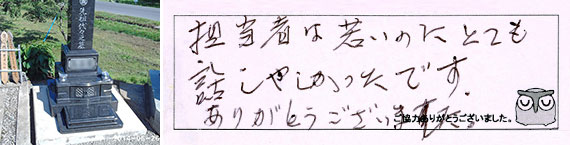 先祖代々之墓
担当者は若いのにとても
話しやしかったです.
ありがとうございました。
ご協力ありがとうございました。